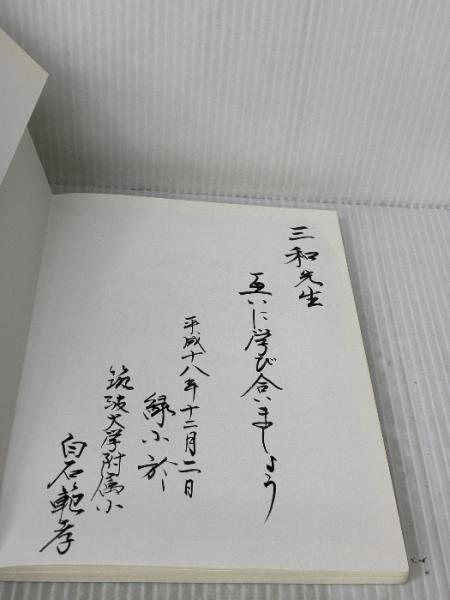 三和先生
互いに学び合いましょう
平成十八年十二月二日
緑小於
筑波大学附属小
白石範孝